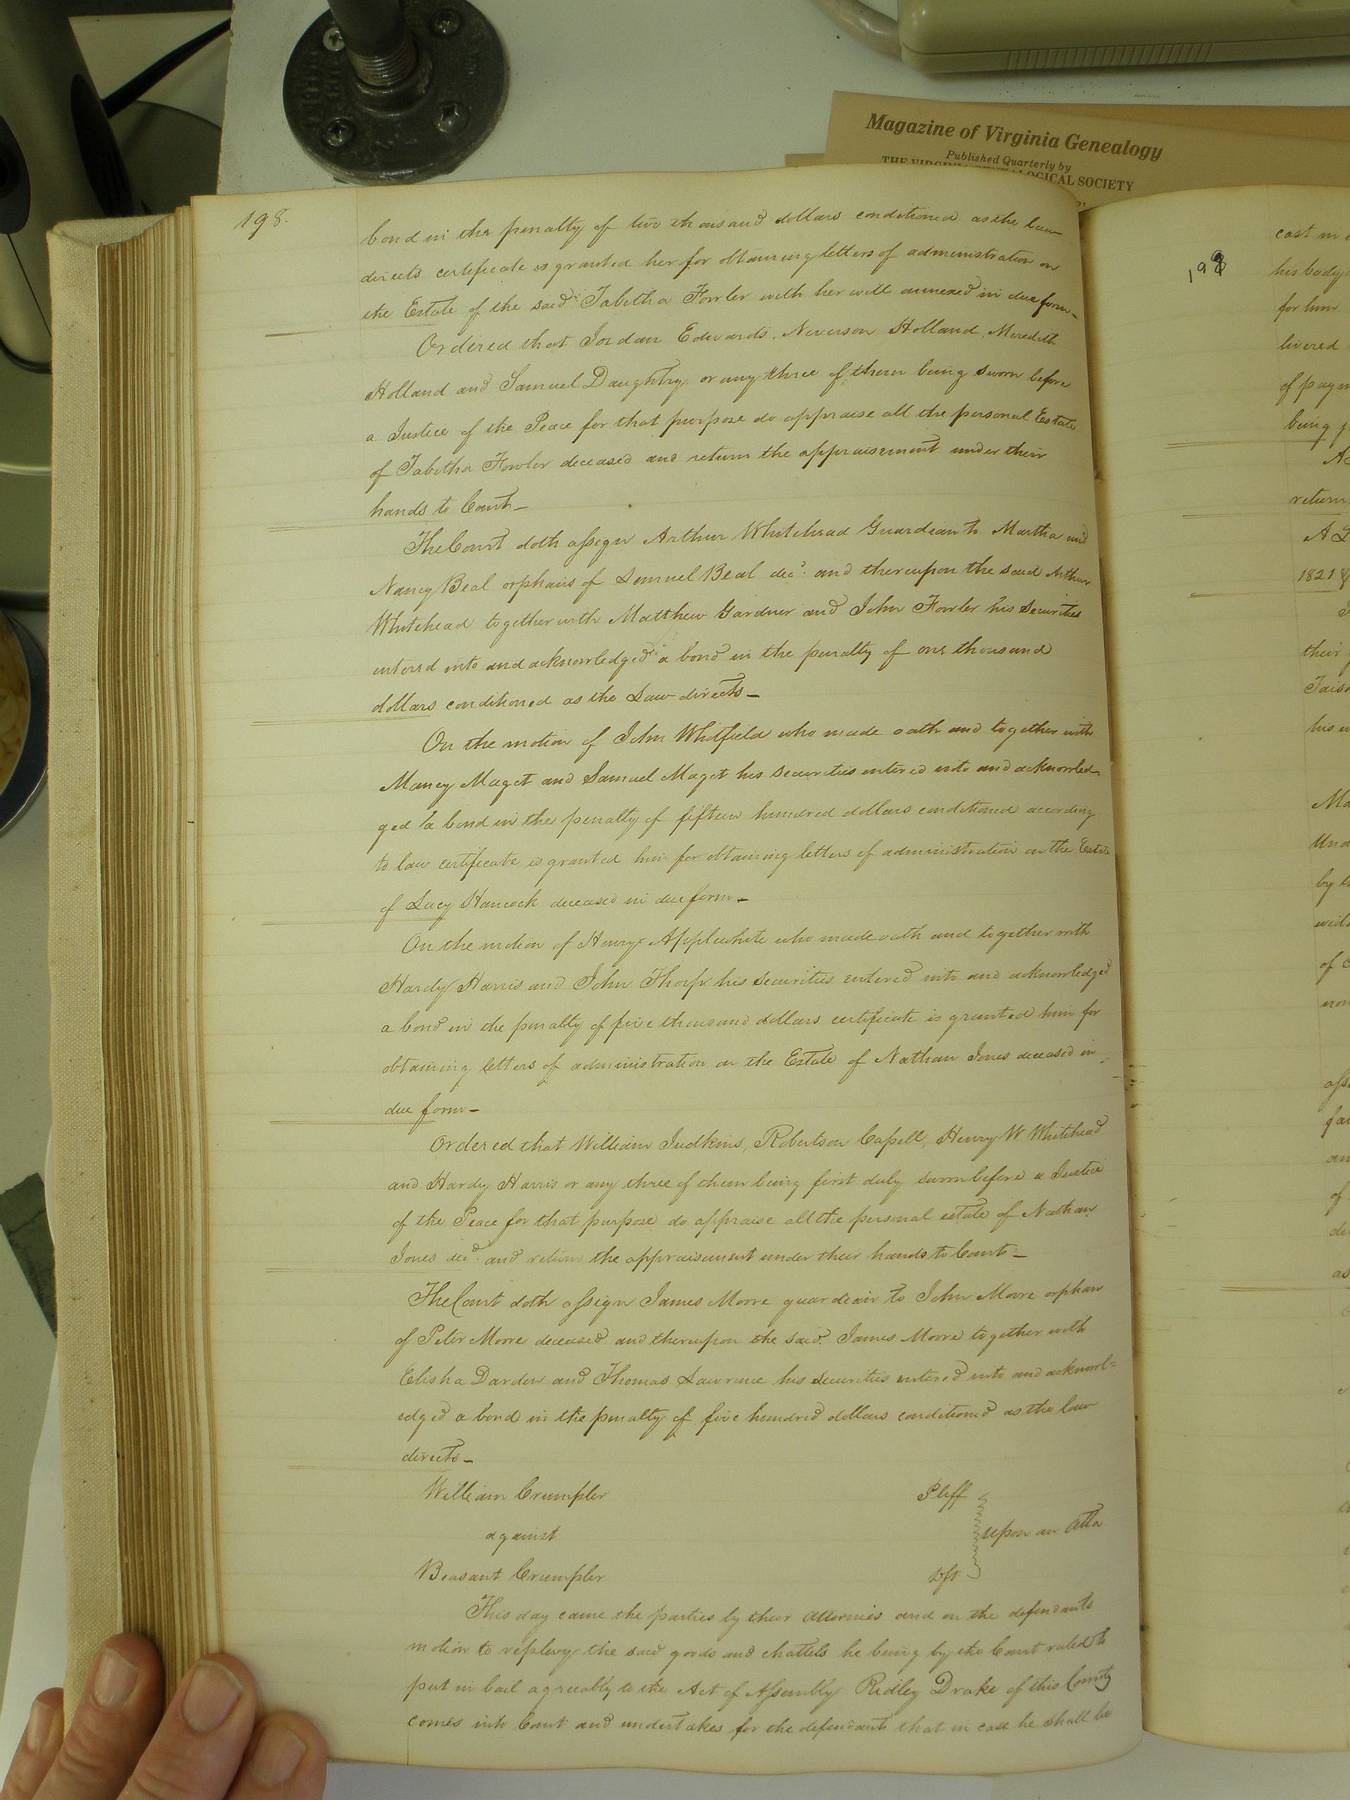 Magazine of Virginia Genealogy
Published Quarterly by
THE VIRGINIA GENEALOGICAL SOCIETY
198.
bond in the penalty of two thousand dollars conditioned as the law
directs certificate is granted her for obtaining letters of administration on
the Estate of the said Tabitha Fowler with her will annexed in due form
Ordered that Jordan Edwards, Neverson Holland, Meredith
Holland and Samuel Daughtry or any three of them being sworn before
a Justice of the Peace for that purpose do appraise all the personal Estate
of Tabitha Fowler deceased and return the appraisement under their
hands to Court
The Court doth assign Arthur Whitehead Guardean to Martha and
Nancy Beal orphans of Lemuel Beal decd. and thereupon the said Arthur
Whitehead together with Matthew Gardner and John Fowler his securities
entered into and acknowledged a bond in the penalty of one thousand
dollars conditioned as the Law directs
On the motion of John Whitfield who made oath and together with
Mancy Maget and Samuel Maget his securities entered into and acknowled-
ged a bond in the penalty of fifteen hundred dollars conditioned according
to law certificate is granted him for obtaining letters of administration on the Estate
of Lucy Hancock deceased in due form
On the motion of Henry Applewhite who made oath and together with
Hardy Harris and John Thorp his securities entered into and acknowledged
a bond in the penalty of five thousand dollars certificate is granted him for
obtaining letters of administration on the Estate of Nathan Jones deceased in
due form
Ordered that William Judkins, Robertson Capell, Henry W Whitehead
and Hardy Harris or any three of them being first duly sworn before a Justice
of the Peace for that purpose do appraise all the personal estate of Nathan
Jones decd. and return the appraisement under their hands to Court
The Court doth assign James Moore guardean to John Moore orphan
of Peter Moore deceased and thereupon the said James Moore together with
Elisha Darden and Thomas Lawrence his securities entered into and acknowl=
edged a bond in the penalty of five hundred dollars conditioned as the law
directs
William Crumpler Pltff
against upon an Atta
Beasant Crumpler Dft
This day came the parties by their Attornies and on the defendants
motion to replevy the said goods and chattels he being by the Court ruled to
put in bail agreeably to the Act of Assembly Ridley Drake of this County
comes into Court and undertakes for the defendants that in case he shall be
199
cast in
his body
for him
livered
of paym
being
return
1821
their
his
Ma
by th
of